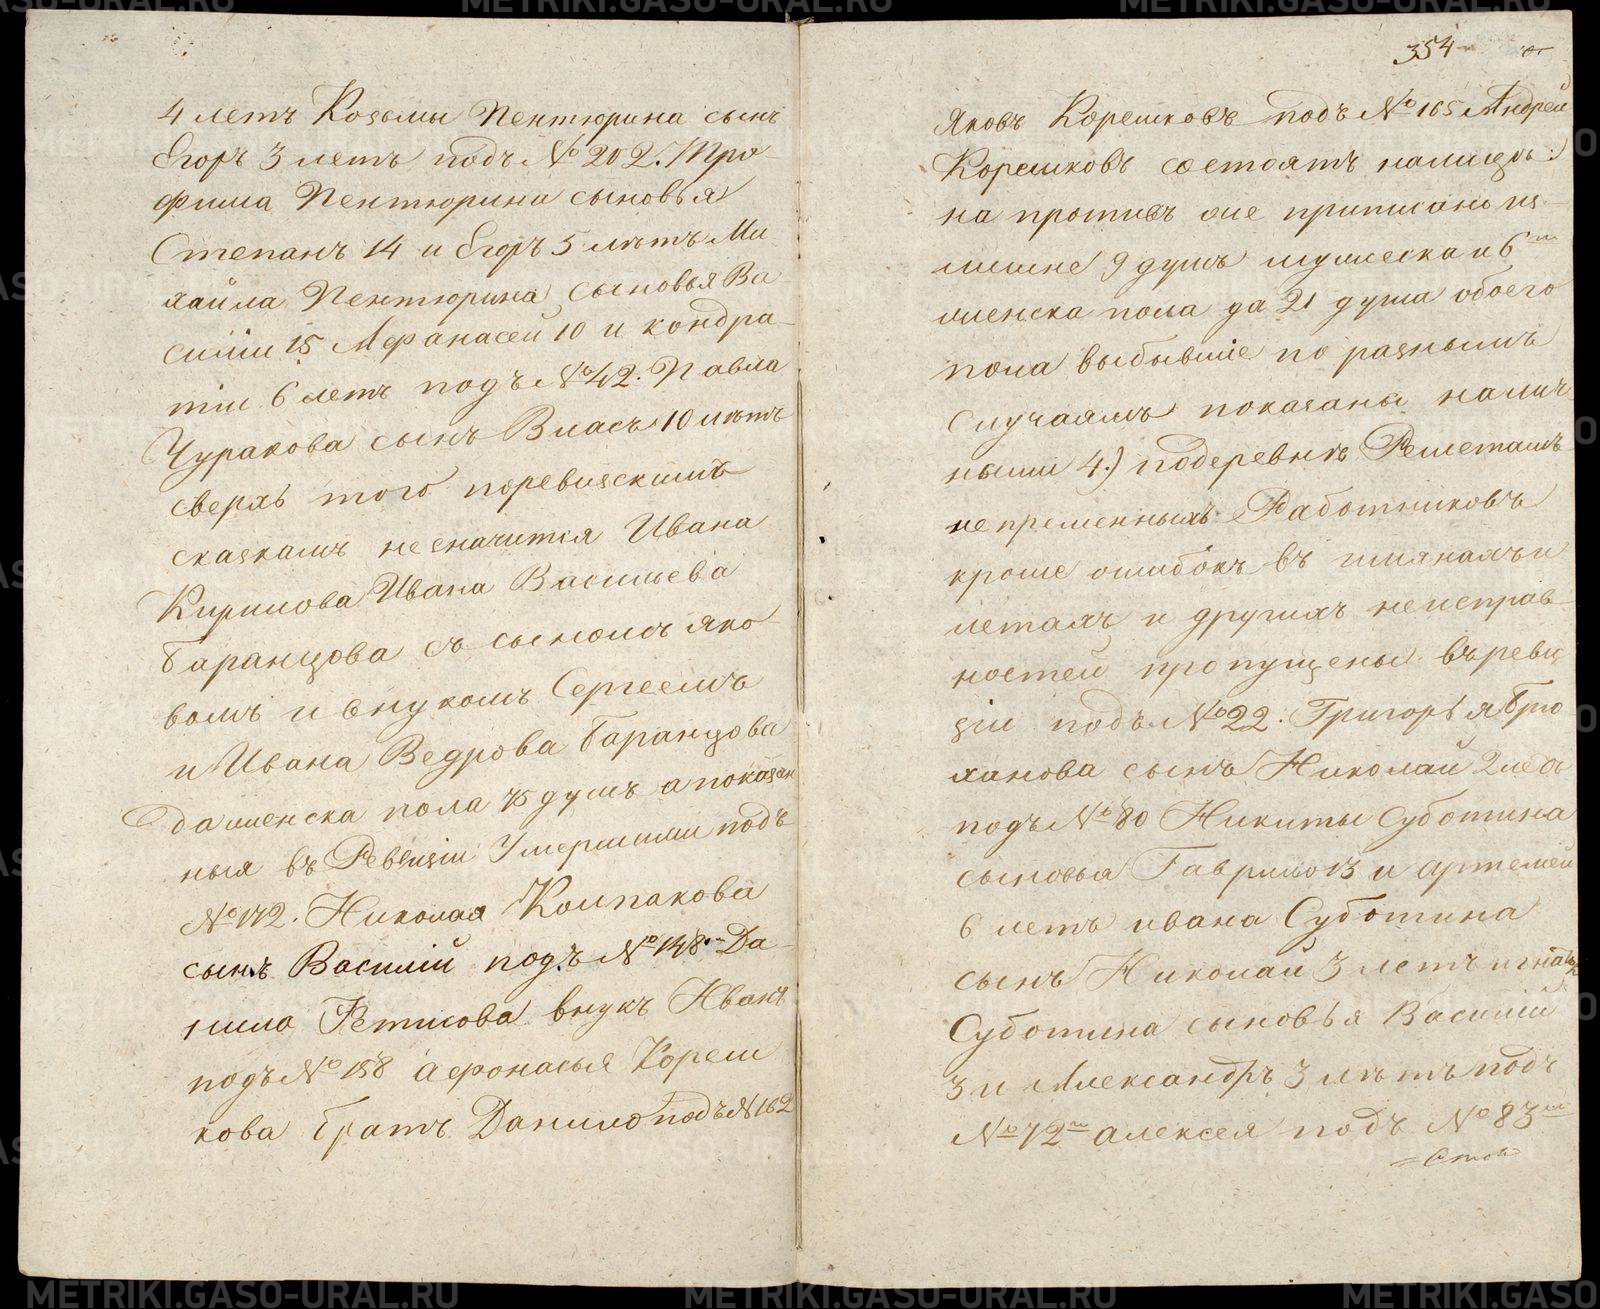 4 летъ Козьмы Пентюрина сынъ
Егоръ 3 летъ подъ № 202. Тро
фима Пентюрина сыновья
Степанъ 14 и Егоръ 5 лѣтъ Ми
хайла Пентюрина сыновья Ва
силіи 15 Афанасеи 10 и кондра
тіи 6 летъ подъ № 42. Павла
Чуракова сынъ Власъ 10 лѣтъ
сверхъ того поревизскимъ
сказкамъ незначится Ивана
Кирилова Ивана Васильева
баранцова съ сыномъ яко
вомъ и внукомъ Сергеемъ
и Ивана Ведрова баранцова
да женска пола 75 душъ а показан
ныя въ Ревизіи Умершими подъ
№ 172. Николая Колпакова
сынъ Василій подъ № 148 Да
нила Ретисова внукъ Иванъ
подъ № 158 афонасья Кореш
кова братъ Данило подъ № 162
354
Яковъ Корешковъ подъ № 165 Андрей
Корешковъ состоятъ налицо:)
на противъ оне приписано из
лишне 9 душъ мужеска и 6
женска пола да 21 душа обоего
пола выбывшіе по разнымъ
Случаямъ показаны налич
ными 4.) подеревнѣ Решетамъ
непременныхъ Работниковъ
кроме ошибокъ въ имянахъ и
летахъ и другихъ неисправ
ностей пропущены въ реви
зіи подъ № 22. Григорья брю
ханова сынъ Николай 2 летъ
подъ № 80 Никиты Суботина
сыновья Гаврило 13 и артемей
6 летъ ивана Суботина
сынъ Николай 3 летъ игнатья
Суботина сыновья Василій
3 и Александръ 3 лѣтъ подъ
№ 72 алексея подъ № 83